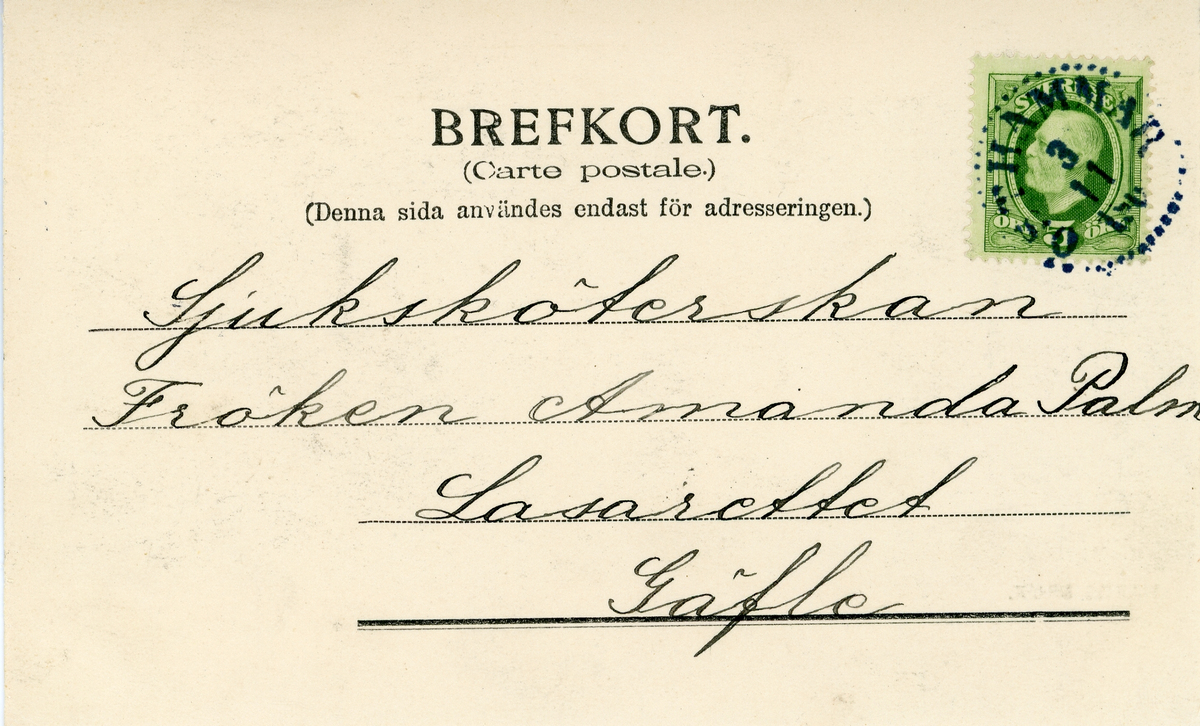 BREFKORT.
(Carte postale.)
(Denna sida användes endast för adresseringen.)
SVERIGE
ÖRE 5 ÖRE
HAMMAR
3
11
Sjuksköterskan
Fröken Amanda Palm
Lasarettet
Gäfle